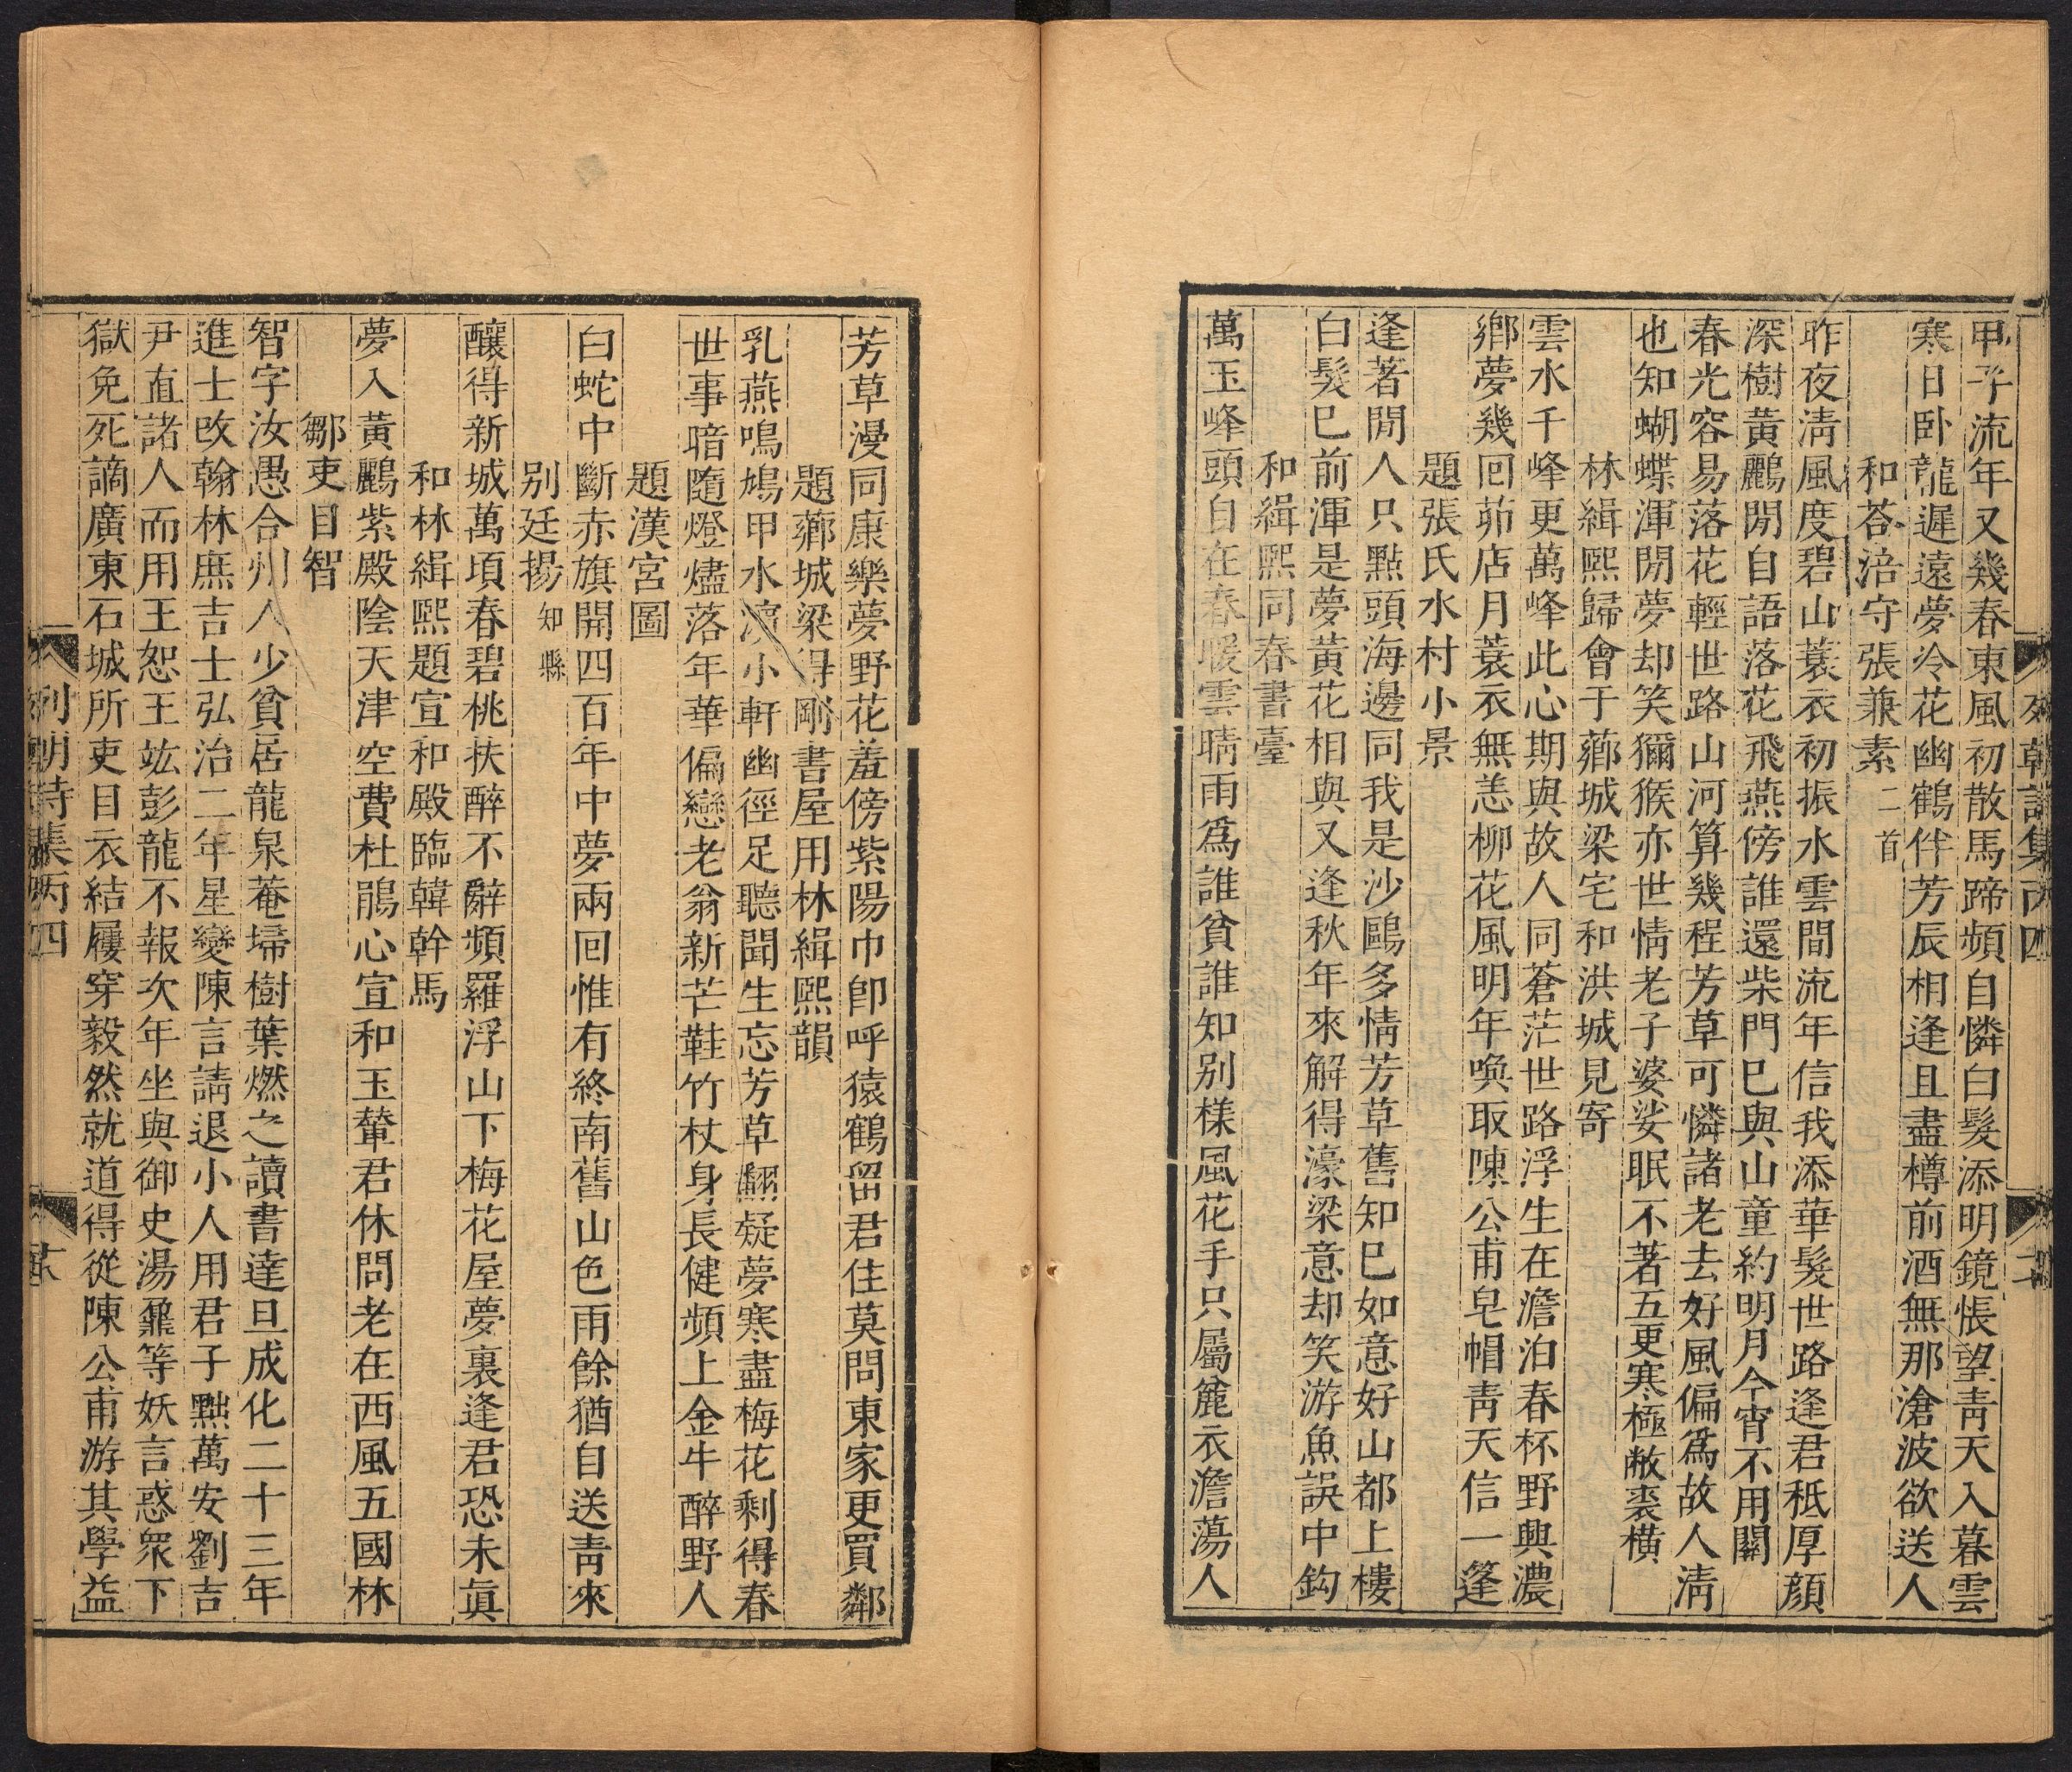 甲子流年又幾春東風初散馬蹄頻自憐白髮添明鏡悵望青天入暮雲
寒日臥龍遲遠夢冷花幽鶴伴芳辰相逢且盡樽前酒無那滄波欲送人
和荅涪守張兼素二首
昨夜清風度碧山蓑衣初振水雲間流年信我添華髮世路逢君秪厚顏
深樹黃鸝閒自語落花飛燕傍誰還柴門巳與山童約明月今宵不用關
春光容易落花輕世路山河算幾程芳草可憐諸老去好風偏爲故人清
也知蝴蝶渾閒夢却笑獼猴亦世情老子婆娑眠不著五更寒極敝裘橫
林緝熙歸會于薌城梁宅和洪城見寄
雲水千峰更萬峰此心期與故人同蒼茫世路浮生在澹泊春杯野興濃
鄉夢幾回茆店月蓑衣無恙柳花風明年喚取陳公甫皂帽青天信一篷
題張氏水村小景
逢著閒人只點頭海邊同我是沙鷗多情芳草舊知巳如意好山都上樓
白髮巳前渾是夢黃花相與又逢秋年來解得濠梁意却笑游魚誤中鈎
和緝熙同春書臺
萬玉峰頭自在春暖雲晴雨爲誰貧誰知別樣風花手只屬麄衣澹蕩人
芳草漫同康樂夢野花羞傍紫陽巾卽呼猿鶴留君住莫問東家更買鄰
題薌城梁得剛書屋用林緝熙韻
乳燕鳴鳩甲水濱小軒幽徑足聽聞生忘芳草翻疑夢寒盡梅花剩得春
世事暗隨燈燼落年華偏戀老翁新芒鞋竹杖身長健頻上金牛醉野人
題漢宮圖
白蛇中斷赤旗開四百年中夢兩回惟有終南舊山色雨餘猶自送青來
別廷揚知縣
釀得新城萬頃春碧桃扶醉不辭頻羅浮山下梅花屋夢裏逢君恐未眞
和林緝熙題宣和殿臨韓幹馬
夢入黃鸝紫殿陰天津空費杜鵑心宣和玉輦君休問老在西風五國林
鄒吏目智
智字汝愚合州人少貧居龍泉菴埽樹葉燃之讀書達旦成化二十三年
進士改翰林庶吉士弘治二年星變陳言請退小人用君子黜萬安劉吉
尹直諸人而用王恕王竑彭龍不報次年坐與御史湯鼐等妖言惑衆下
獄免死謫廣東石城所吏目衣結屨穿毅然就道得從陳公甫游其學益
列朝詩集丙四